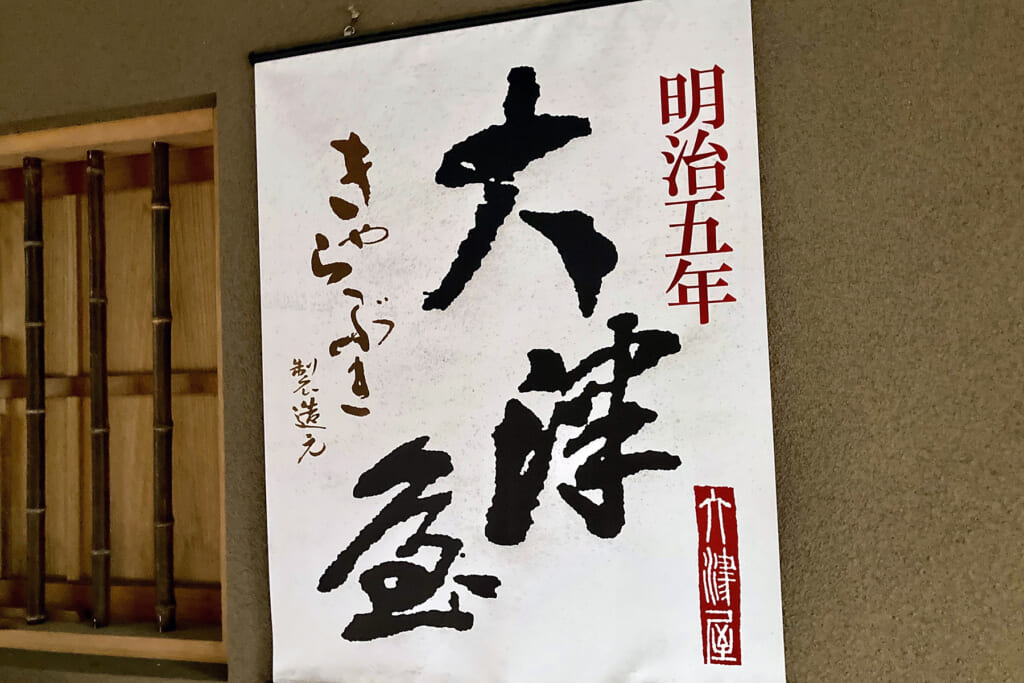 明治五年
大津屋
きゃらぶき
製造元
大津屋